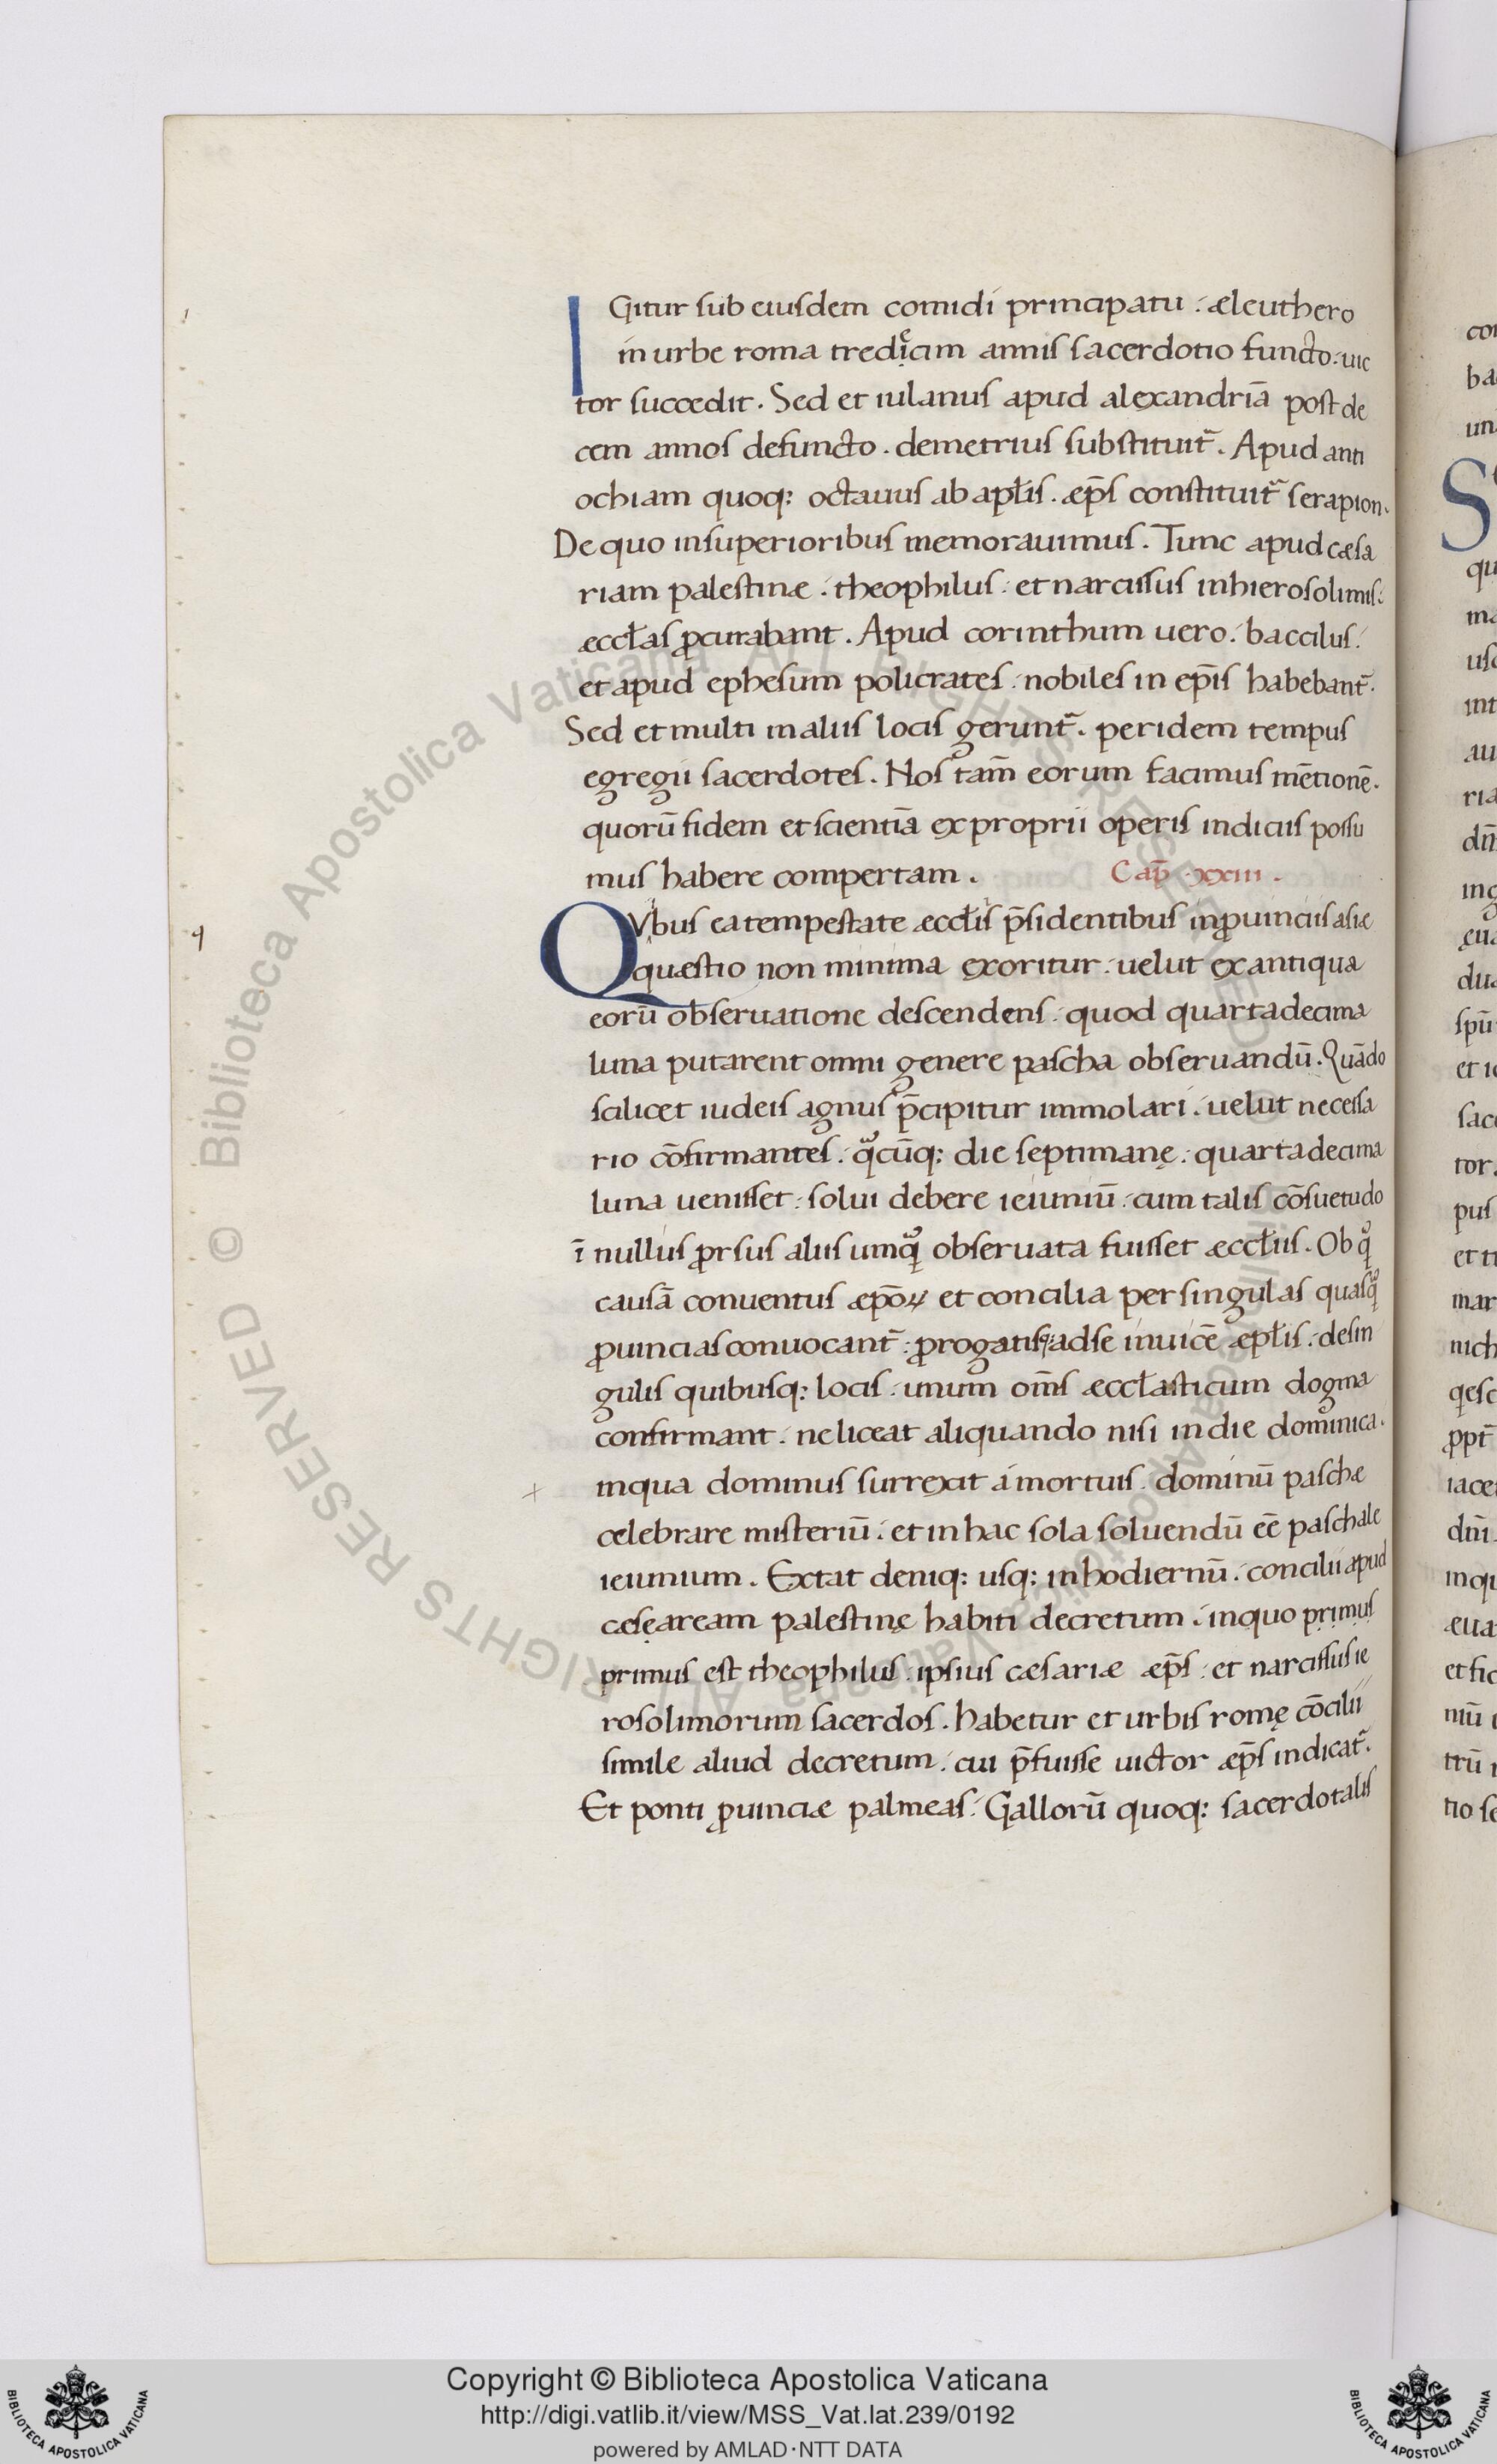 IGitur sub eiusdem comidi principatu : æleuthero
in urbe roma tredicim annis sacerdotio functo : uic
tor succedit . Sed et iulanus apud alexandriā post de
cem annos defuncto . demetrius substituit᷑ . Apud anti
ochiam quoq: octauus ab apłis . æp̄s constituit᷑ serapion .
De quo in superioribus memorauimus . Tunc apud cæsa
riam palestinæ : theophilus : et narcissus in hierosolimis :
æccłas ꝓcurabant . Apud corinthum uero : baccilus :
et apud ephesum policrates : nobiles in ep̄is habebant᷑ .
Sed et multi in aliis locis gerunt᷑ . per idem tempus
egregii sacerdotes . Nos tam̄ eorum facimus mētionē .
quorū fidem et scientiā ex proprii operis indiciis possu
mus habere compertam . Cap̄ . xxiii .
QVibus ea tempestate æccłis p̄sidentibus in ꝓuinciis asiæ
quæstio non minima exoritur : uelut ex antiqua
eorū obseruatione descendens : quod quartadecima
luna putarent omni genere pascha obseruandū . Quādo
scilicet iudeis agnus p̄cipitur immolari : uelut necessa
rio cōfirmantes : qͣcūq: die septimanę : quartadecima
luna uenisset : solui debere ieiuniū : cum talis cōsuetudo
ī nullis ꝓrsus aliis umqͣ obseruata fuisset æccłiis . Ob qͣ
causā conuentus æpōꝝ et concilia per singulas quasqͣ
ꝓuincias conuocant᷑ : ꝓrogatisq; ad se inuicē æpłis : de sin
gulis quibusq: locis : unum om̄s æccłasticum dogma
confirmant : ne liceat aliquando nisi in die dominica .
in qua dominus surrexit á mortuis . dominū paschæ
celebrare misteriū : et in hac sola soluendū eē paschale
ieiunium . Extat deniq: usq: in hodiernū : concilii apud
cesęaream palestinę habiti decretum : in quo primus
primus est theophilus : ipsius cæsariæ æp̄s : et narcissus ie
rosolimorum sacerdos . habetur et urbis romę cōcilii
simile aliud decretum : cui p̄fuisse uictor æp̄s indicat᷑ .
Et ponti ꝓuinciæ palmeas : Gallorū quoq: sacerdotalis
Copyright © Biblioteca Apostolica Vaticana
http://digi.vatlib.it/view/MSS_Vat.lat.239/0192
powered by AMLAD·NTT DATA